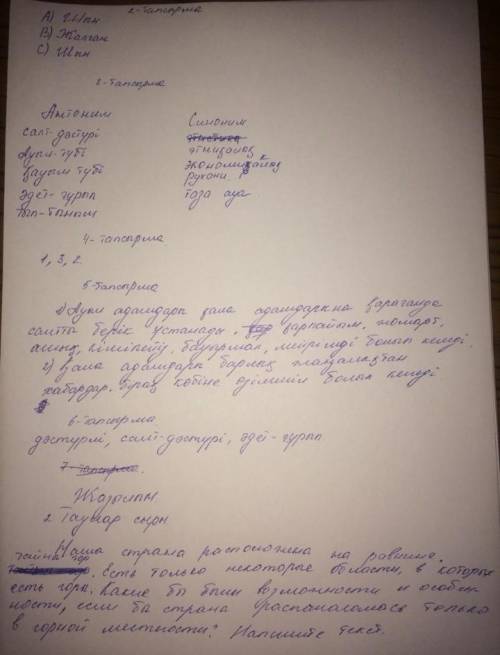 2-тапсырма
А) Шын
В) Жалған
С) Шын
3-тапсырма
Антоним Синоним
салт-дәстүрі
ауыл түбі этникалық
қауым түбі экономикалық
рухани
әдет-ғұрып таза ауа
тып-тыныш
4-тапсырма
1, 3, 2
5-тапсырма
1) Ауыл адамдары қала адамдарына қарағанда
салтты берік ұстанады. қарапайым, жомарт,
ашық, кішіпейіл, бауырмал, мейірімді болып келеді.
2) Қала адамдары барлық жаңалықтан
хабардар. Бірақ көбіне өзімшіл болып келеді
6-тапсырма
дәстүрлі, салт-дәстүрі, әдет-ғұрып
7-тапсырма.
Жазылым
2 Таулар сыры
Наша страна расположена на равнине.
тайна гор. Есть только некоторые области, в которых
есть горы. Какие бы были возможности и особен-
ности, если бы страна располагалась только
в горной местности? Напишите текст.